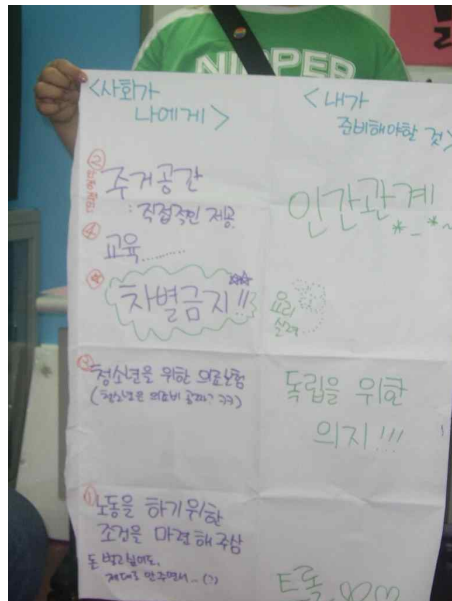 <사회가
나에게>
② 주거공간
: 직접적인 제공.
④ 교육.........
차별금지!!
③ 청소년을 위한 의료보험
(청소년은 의료비 공짜? ㅋㅋ)
① 노동을 하기위한
조건을 마련해 주삼
돈 벌고싶어도.
제대로 안주면서... (?)
<내가
준비해야할 것>
인간관계
*_*~
요리
실력
독립을 위한
의지!!!